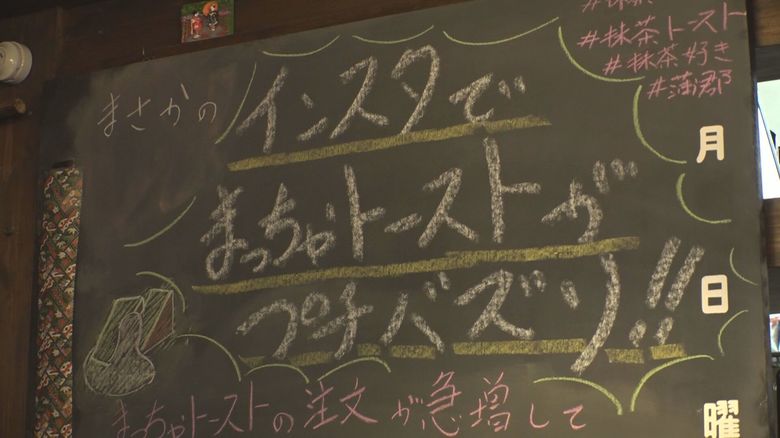 #抹茶トースト
#抹茶好き
#蒲郡
まさかの
インスタで
まっちゃトーストが
プチバズり!!
まっちゃトーストの注文が急増して
月
日
曜